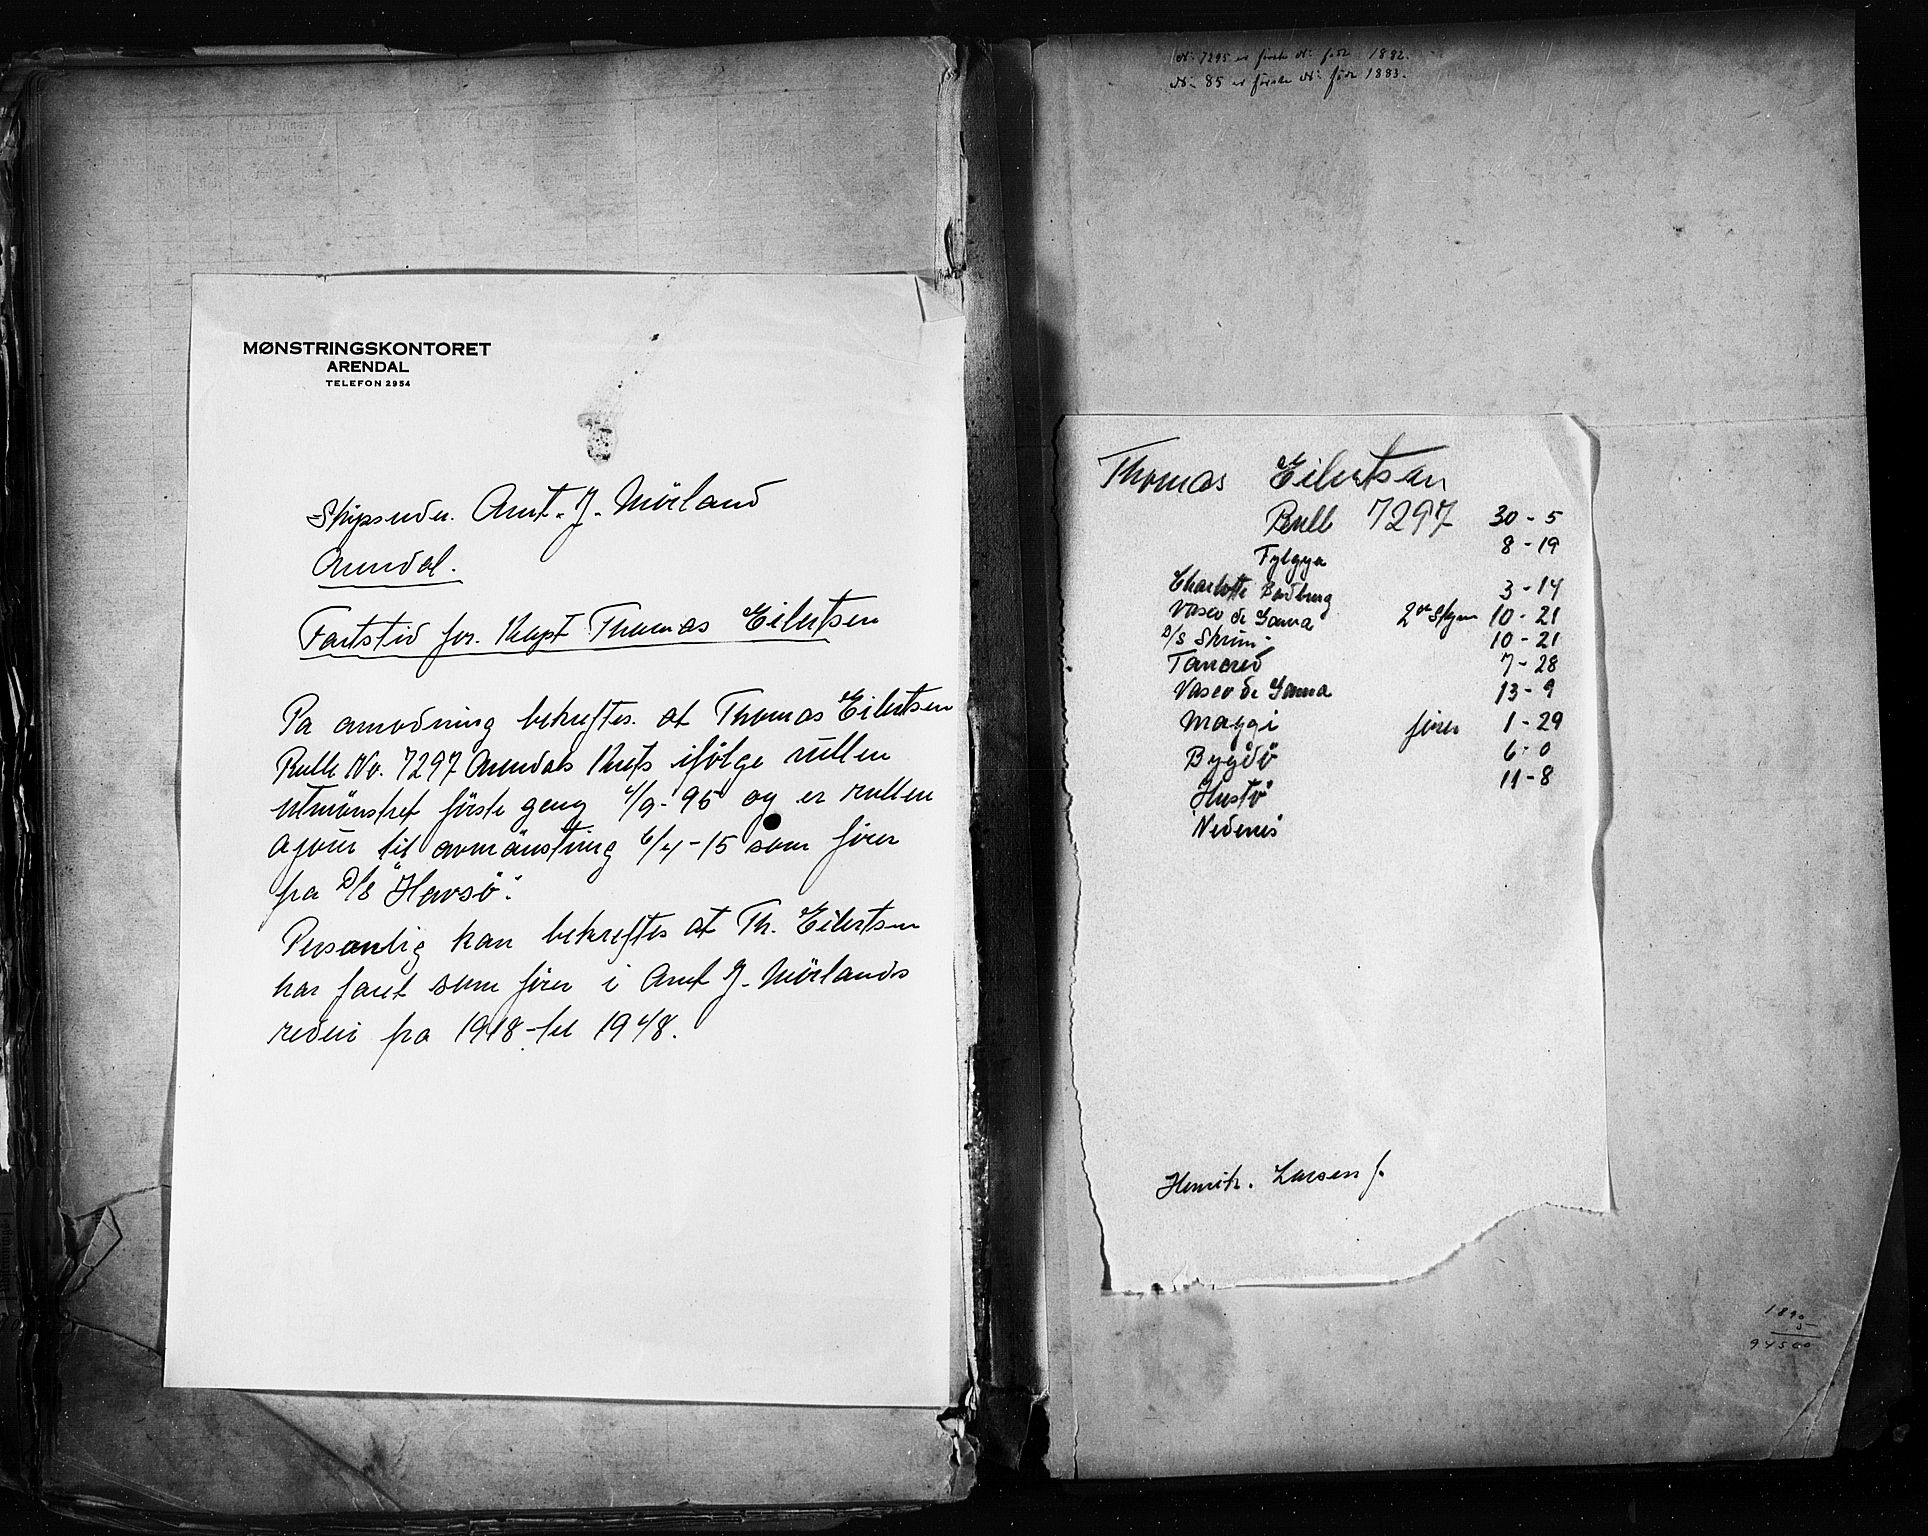 MØNSTRINGSKONTORET
ARENDAL
TELEFON 2954
Skipsreder. Arnt. J. Mörland
Arendal.
Fartstid for. Kapt Thomas Eilertsen
Pa anmodning bekreftes. at Thomas Eilertsen
Rulle No. 7297 Arendals Krets ifölge rullen
utmönstret förste gang 4/9-95 og er rullen
ajour til avmönstring 6/4-15 som förer
fra D/S "Havsö".
Personlig kan bekreftes at Th. Eilertsen
har faret som förer i Arnt J. Mörlands
rederi fra 1918-til 1948.
No 7295 er förste No född 1882.
No 85 er förste No född 1883.
Thomas Eilertsen
Rull 7297 30-5
Fylgya 8-19
Charlotte 3-14
Vasco de Gama 2den Styrm 10-21
D/S Skrim 10-21
Tancred 7-28
Vasco de Gama 13-9
Maggi förer 1-29
Bygdö 6-0
Hustö 11-8
Nedenes
Henrik. Larsen f.
1890
5
94500